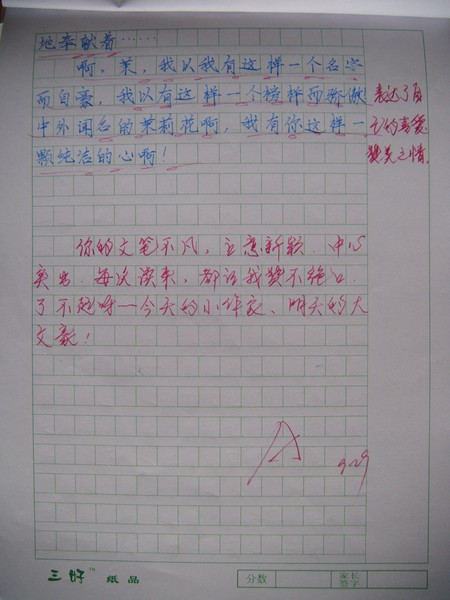 地奉献着……
啊，茉，我以我有这样一个名字
而自豪，我以有这样一个榜样而骄傲
中外闻名的茉莉花啊，我有你这样一
颗纯洁的心啊！
表达了自
己的喜爱
赞美之情
你的文笔不凡，立意新颖．中心
突出．每次读来，都让我赞不绝口．
了不起呀—今天的小作家、明天的大
文豪！
A
9.29
三好™纸品
分数
家长
签字